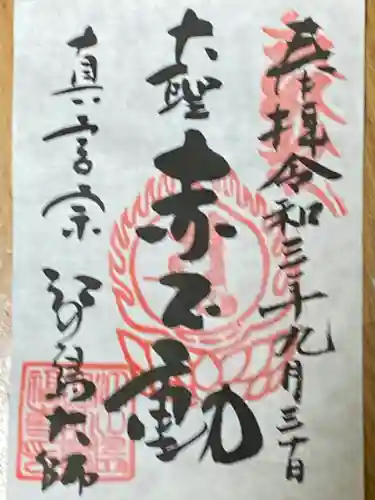 奉拝 令和三年九月三十日
大聖 赤不動
真言宗 記島大師